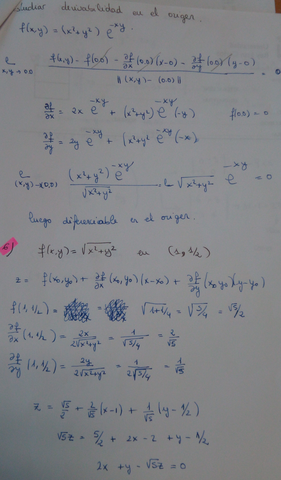 Estudiar derivabilidad en el origen.
f(x,y) = (x²+y²) e^{-xy}
lim_{x,y→0,0} (f(x,y) - f(0,0) - ∂f/∂x (0,0)(x-0) - ∂f/∂y (0,0)(y-0)) / ||(x,y) - (0,0)|| = 0
∂f/∂x = 2x e^{-xy} + (x²+y²) e^{-xy}(-y)   f(0,0) = 0
∂f/∂y = 2y e^{-xy} + (x²+y²) e^{-xy}(-x)
lim_{(x,y)→(0,0)} (x²+y²) e^{-xy} / √(x²+y²) √(x²+y²) e^{-xy} = 0
luego diferenciable en el origen.
f(x,y) = √(x²+y²) en (1, 1/2)
z = f(x₀,y₀) + ∂f/∂x (x₀,y₀)(x-x₀) + ∂f/∂y (x₀,y₀)(y-y₀)
f(1,1/2) = = √(1+1/4) = √(5/4) = √5/2
∂f/∂x (1,1/2) = 2x / 2√(x²+y²) = 1/√(5/4) = 2/√5
∂f/∂y (1,1/2) = 2y / 2√(x²+y²) = 1 / 2√(5/4) = 1/√5
z = √5/2 + 2/√5 (x-1) + 1/√5 (y-1/2)
√5z = 5/2 + 2x - 2 + y - 1/2
2x + y - √5z = 0